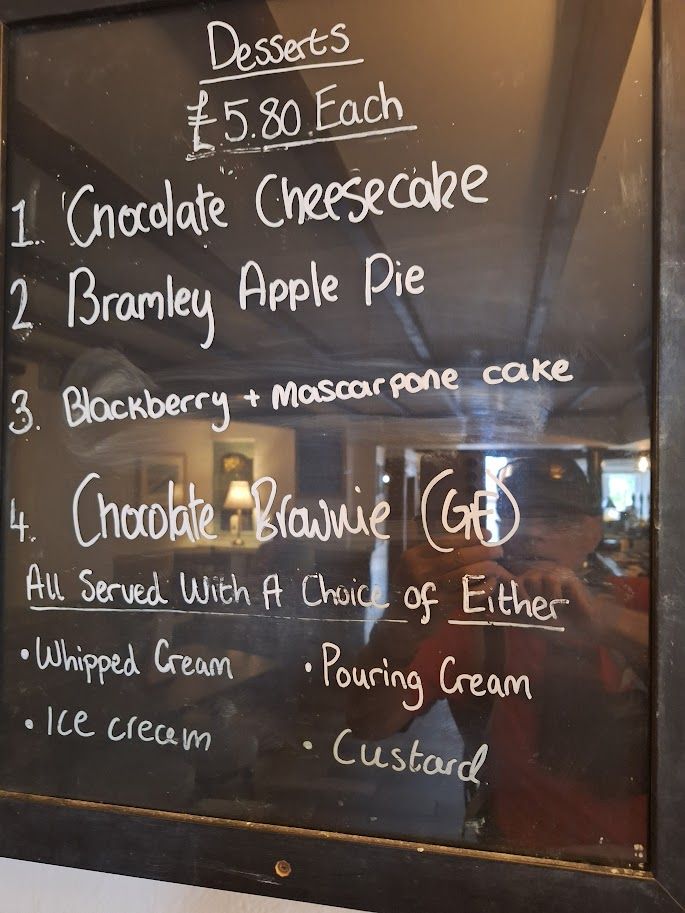 Desserts
£5.80 Each
1. Chocolate Cheesecake
2 Bramley Apple Pie
3. Blackberry + Mascarpone cake
4. Chocolate Brownie (GF)
All Served With A Choice of Either
• Whipped Cream • Pouring Cream
• Ice cream • Custard